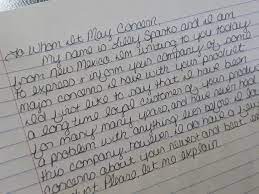 To Whom It May Concern,
My name is Jilly Sparks and I am
from New Mexico. I'm writing to you today
to express + inform your company of some
major concerns I have with your product
I'd first like to say that I have been
a long time loyal customer of your product
for many many years, and have never had
a problem with anything ever before
this company, however, I do have a few
concerns about your newest and best
Please, let me explain